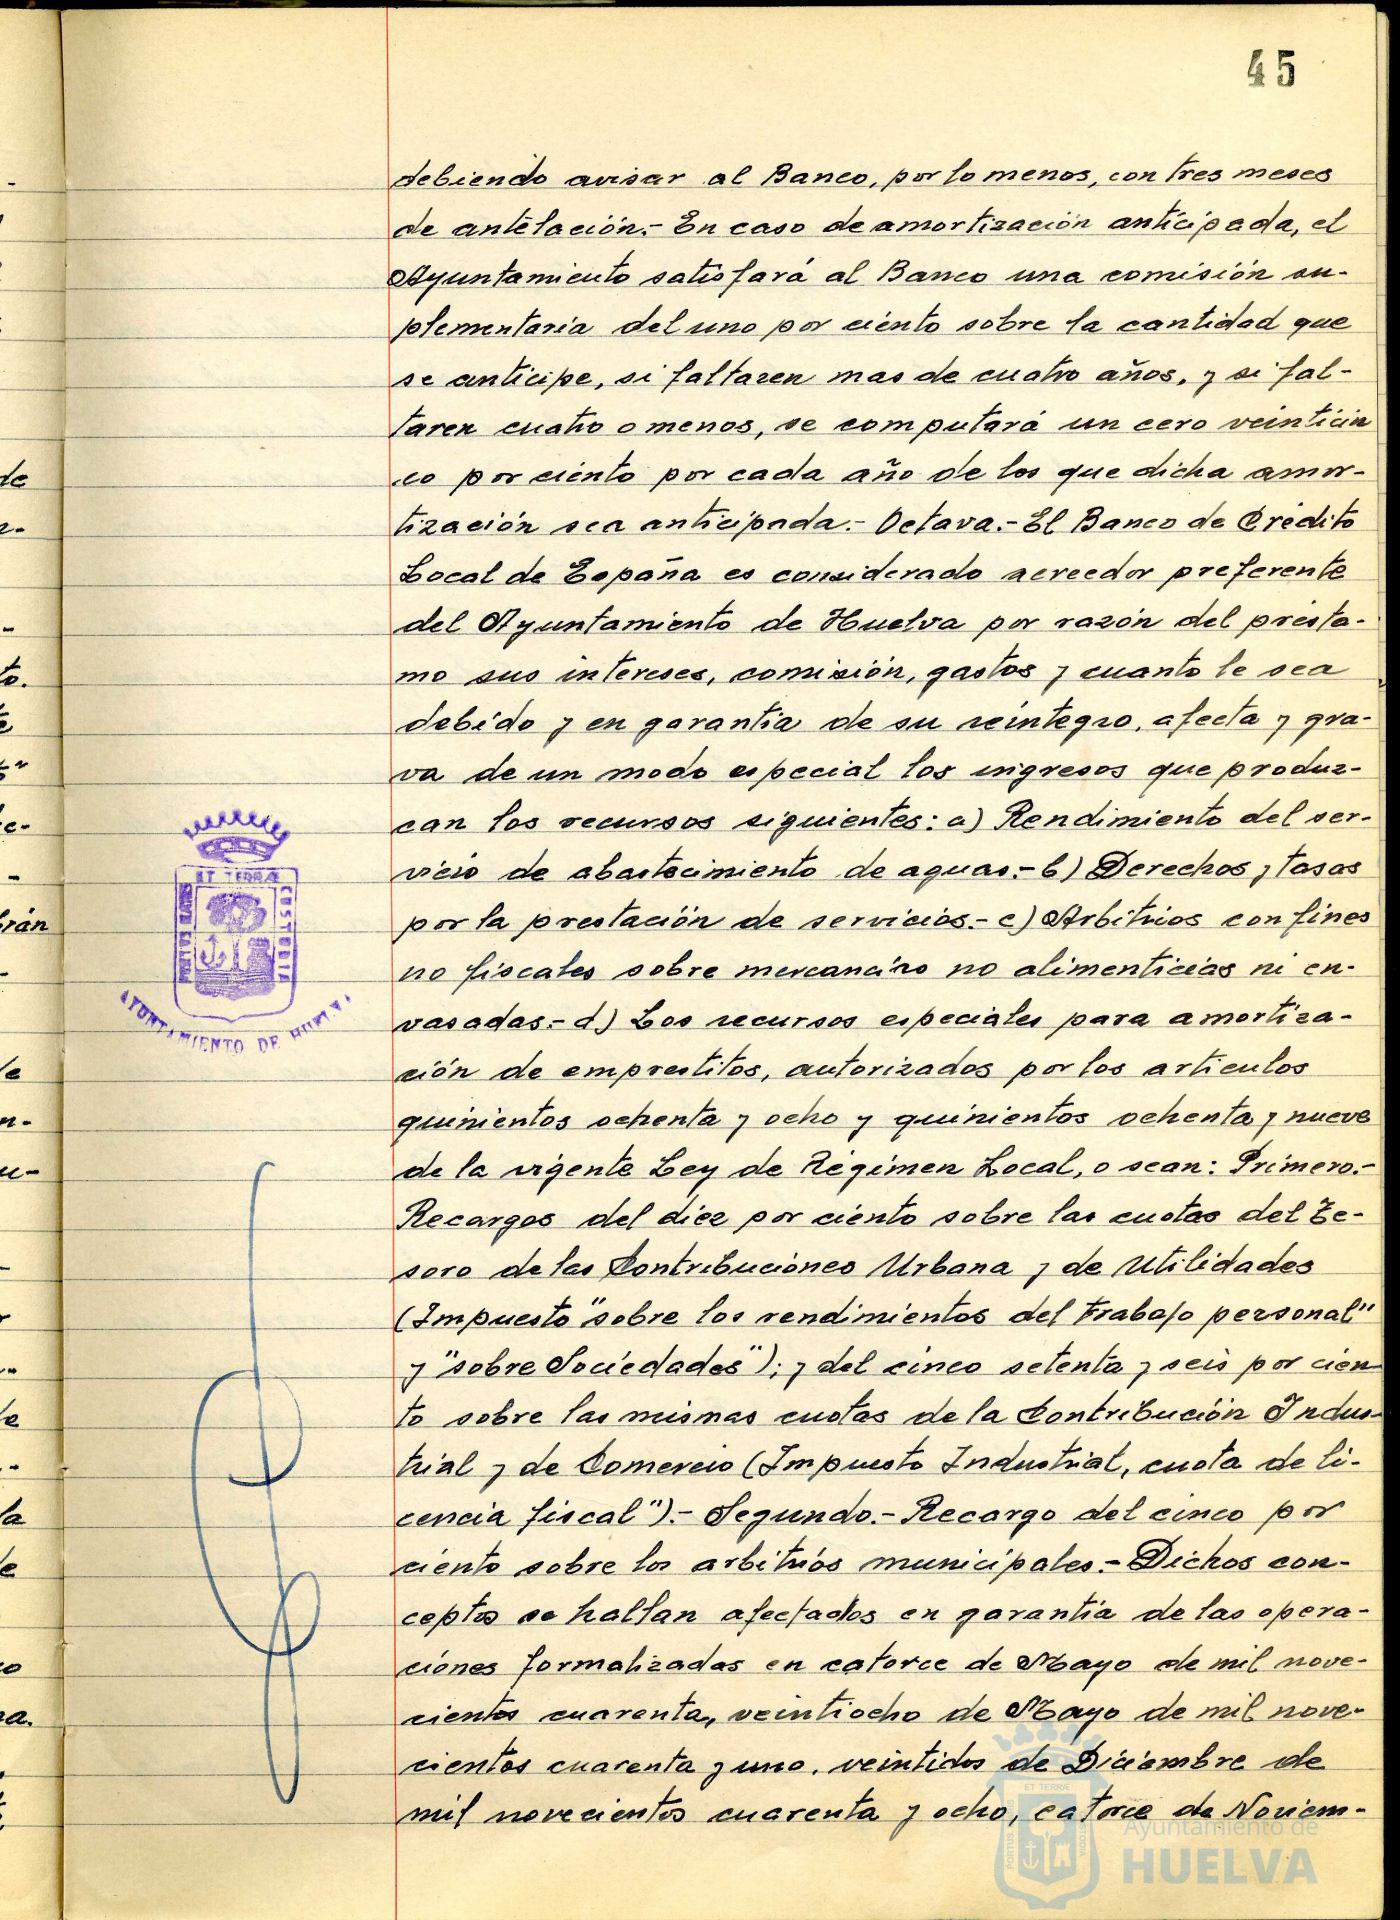 45
debiendo avisar al Banco, por lo menos, con tres meses
de antelación.- En caso de amortización anticipada, el
Ayuntamiento satisfará al Banco una comisión su-
plementaria del uno por ciento sobre la cantidad que
se anticipe, si faltaren mas de cuatro años, y si fal-
taren cuatro o menos, se computará un cero veinticin
co por ciento por cada año de los que dicha amor-
tización sea anticipada.- Octava.- El Banco de Crédito
Local de España es considerado acreedor preferente
del Ayuntamiento de Huelva por razón del présta-
mo sus intereses, comisión, gastos y cuanto le sea
debido y en garantía de su reintegro, afecta y gra-
va de un modo especial los ingresos que produz-
can los recursos siguientes: a) Rendimiento del ser-
vicio de abastecimiento de aguas.- b) Derechos y tasas
por la prestación de servicios.- c) Arbitrios con fines
no fiscales sobre mercancías no alimenticias ni en-
vasadas.- d) Los recursos especiales para amortiza-
ción de emprestitos, autorizados por los articulos
quinientos ochenta y ocho y quinientos ochenta y nueve
de la vigente Ley de Régimen Local, o sean: Primero.-
Recargos del diez por ciento sobre las cuotas del Te-
soro de las Contribuciones Urbana y de Utilidades
(Impuesto "sobre los rendimientos del trabajo personal"
y "sobre Sociedades"); y del cinco setenta y seis por cien
to sobre las mismas cuotas de la Contribución Indus-
trial y de Comercio (Impuesto Industrial, cuota de li-
cencia fiscal").- Segundo.- Recargo del cinco por
ciento sobre los arbitrios municipales.- Dichos con-
ceptos se hallan afectados en garantía de las opera-
ciones formalizadas en catorce de Mayo de mil nove-
cientos cuarenta, veintiocho de Mayo de mil nove-
cientos cuarenta y uno, veintidos de Diciembre de
mil novecientos cuarenta y ocho, catorce de Noviem-
PORTUS MARIS
ET TERRÆ
CUSTODIA
AYUNTAMIENTO DE HUELVA
ET TERRÆ
Ayuntamiento de
HUELVA